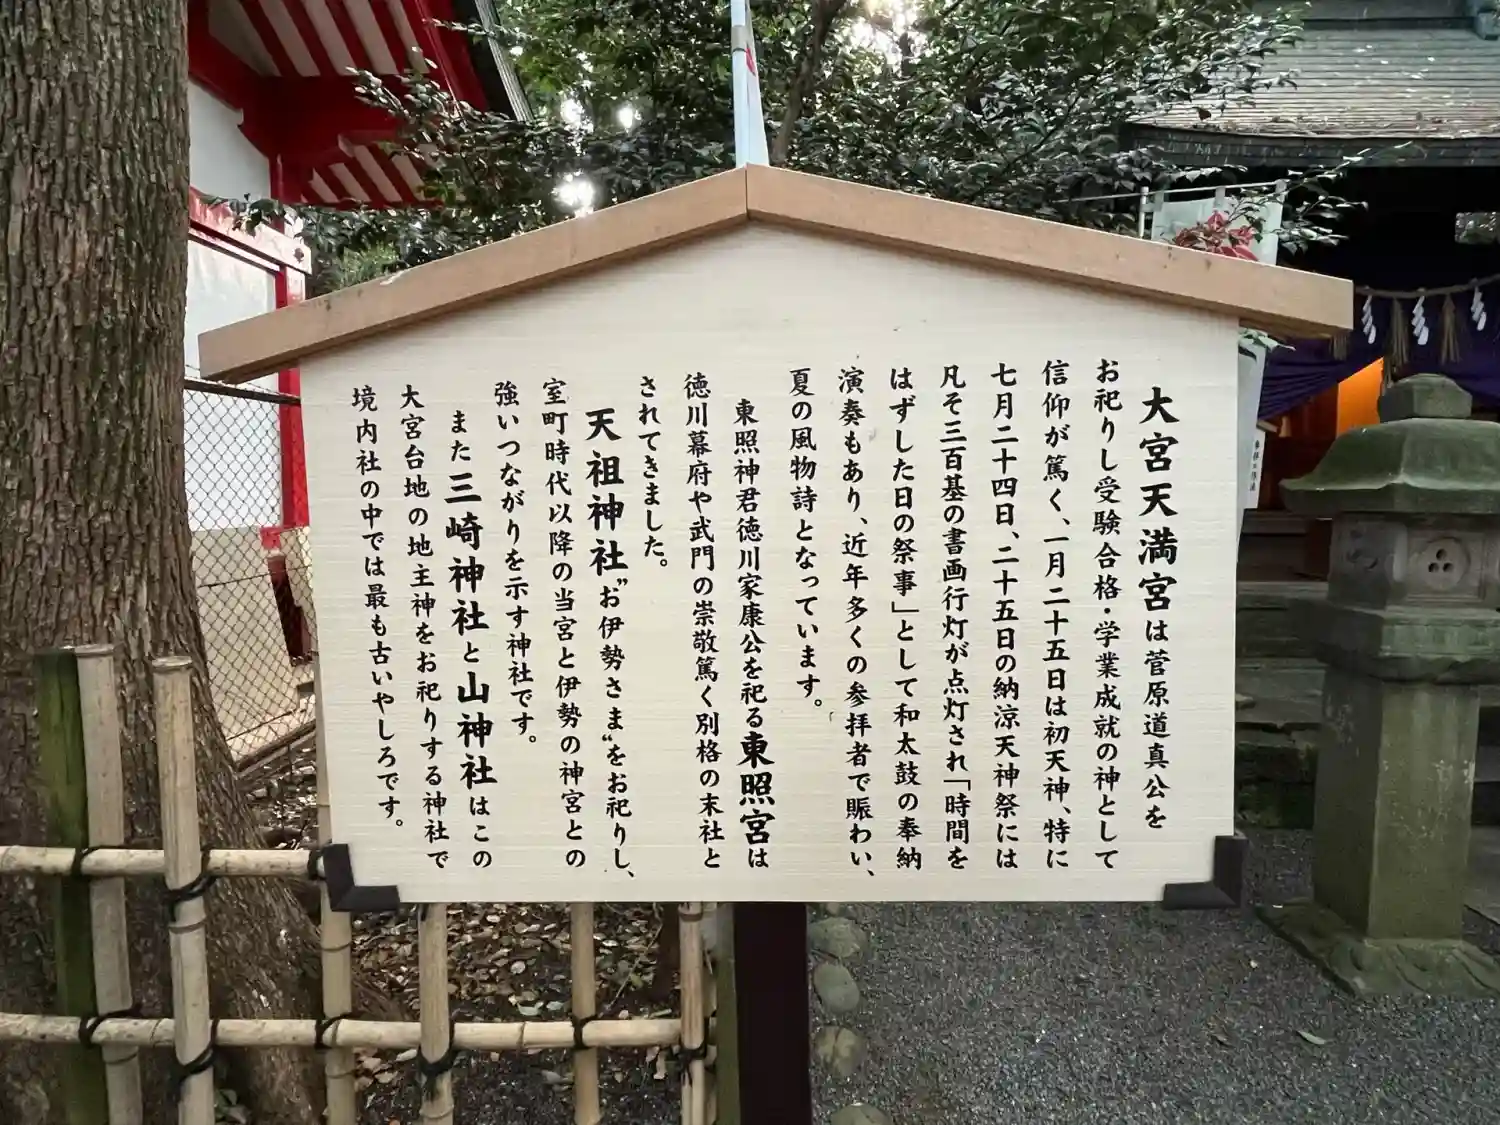 大宮天満宮は菅原道真公を
お祀りし受験合格・学業成就の神として
信仰が篤く、一月二十五日は初天神、特に
七月二十四日、二十五日の納涼天神祭には
凡そ三百基の書画行灯が点灯され「時間を
はずした日の祭事」として和太鼓の奉納
演奏もあり、近年多くの参拝者で賑わい、
夏の風物詩となっています。
東照神君徳川家康公を祀る東照宮は
徳川幕府や武門の崇敬篤く別格の末社と
されてきました。
天祖神社〝お伊勢さま〟をお祀りし、
室町時代以降の当宮と伊勢の神宮との
強いつながりを示す神社です。
また三崎神社と山神社はこの
大宮台地の地主神をお祀りする神社で
境内社の中では最も古いやしろです。